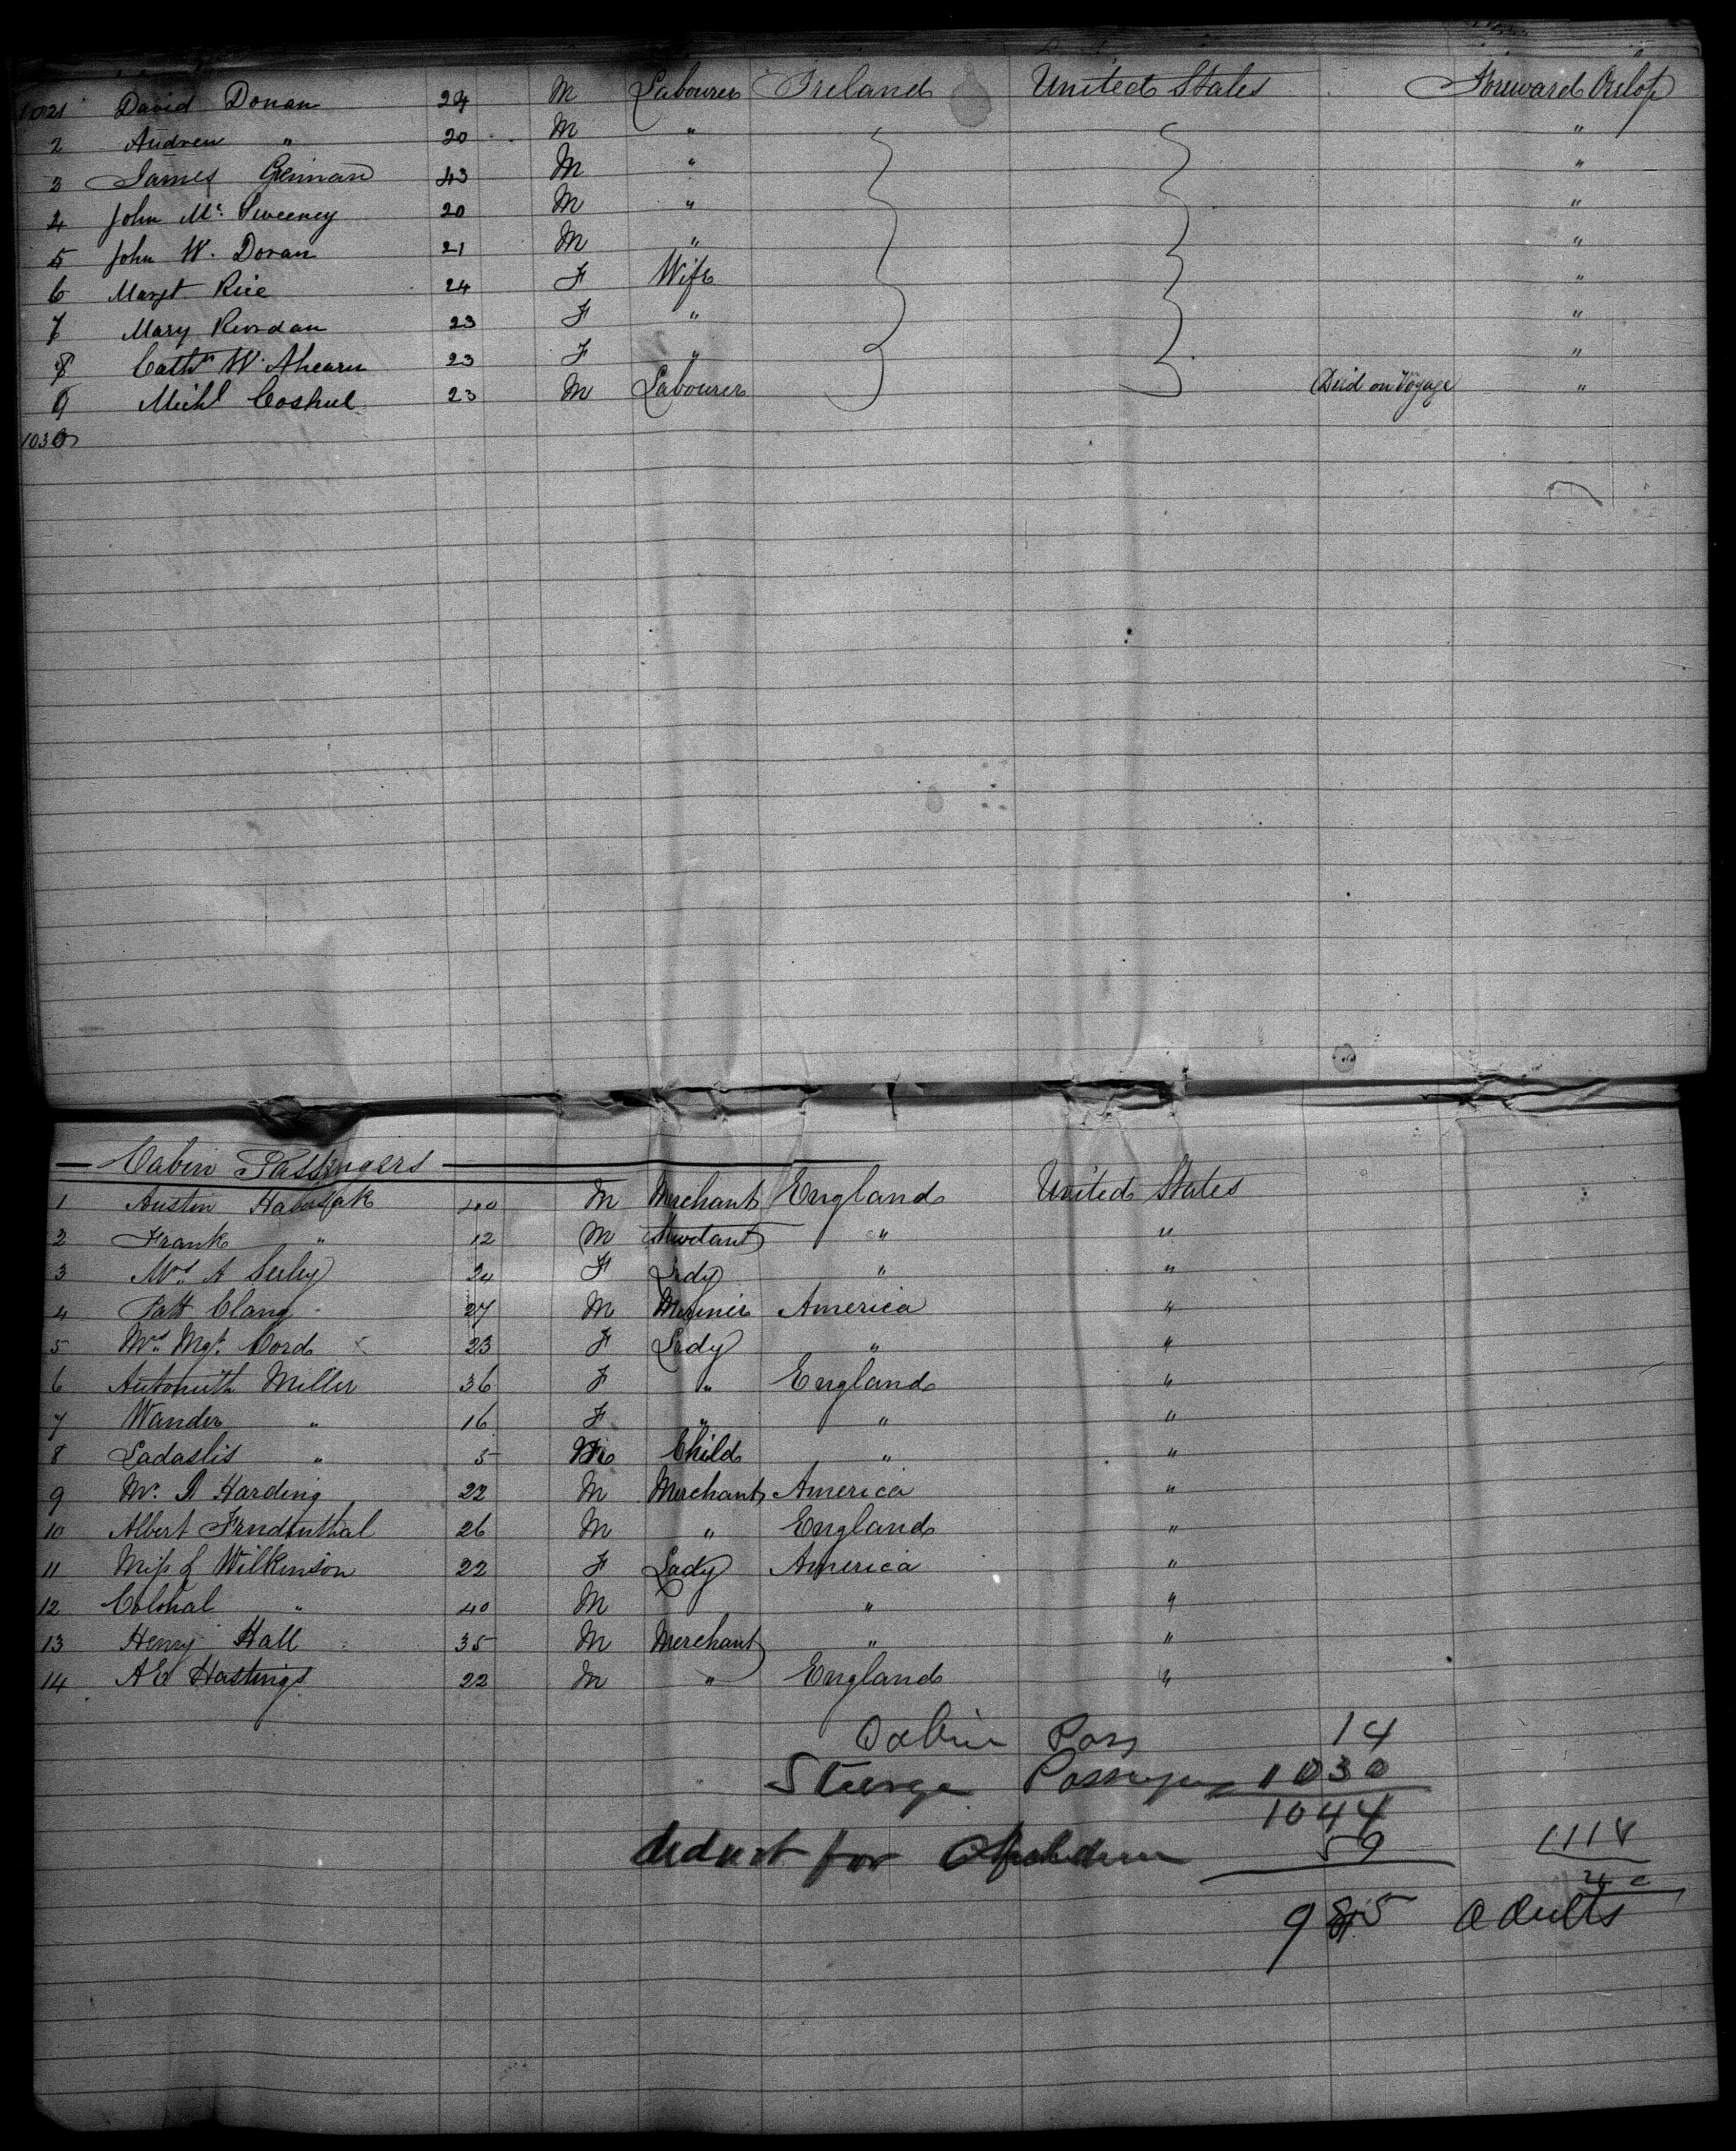 1021 David Donan 24 M Labourer Ireland United States Foreward Orlop
2 Andrew " 20 M " "
3 James 43 M " "
4 John Mc Sweeney 20 M " "
5 John W. Doran 21 M " "
6 Margt Rice 24 F Wife "
7 Mary Riordan 23 F " "
8 Cathn W. Ahearn 23 F " "
9 Michl 23 M Labourer Died on Voyage "
1030
Cabin Passengers
1 Austin 40 M Merchant England United States
2 Frank " 12 M Studant " "
3 Mrs A 24 F Lady " "
4 Patt Clany 27 M Mariner America "
5 Mrs Mgt. Cord 23 F Lady " "
6 Miller 36 F " England "
7 Wander " 16 F " " "
8 Ladaslis " 5 M Child " "
9 Mr. Harding 22 M Merchant America "
10 Albert 26 M " England "
11 Miss L Wilkinson 22 F Lady America "
12 Colonal " 40 M " "
13 Henry Hall 35 M Merchant " "
14 A E Hastings 22 M " England "
Cabin Pass 14
Steerage Passengers 1030
1044
deduct for Children 59
985 adults